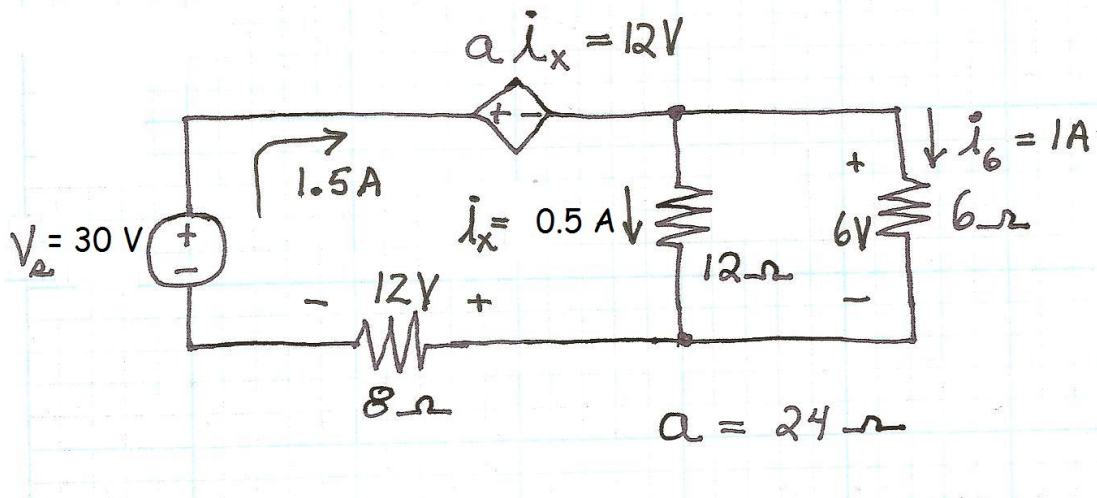 a i_x = 12V
1.5A
i_6 = 1A
V_s = 30 V
+ -
+
-
i_x = 0.5 A
12Ω
+
6V
-
6Ω
- 12V +
8Ω
a = 24Ω